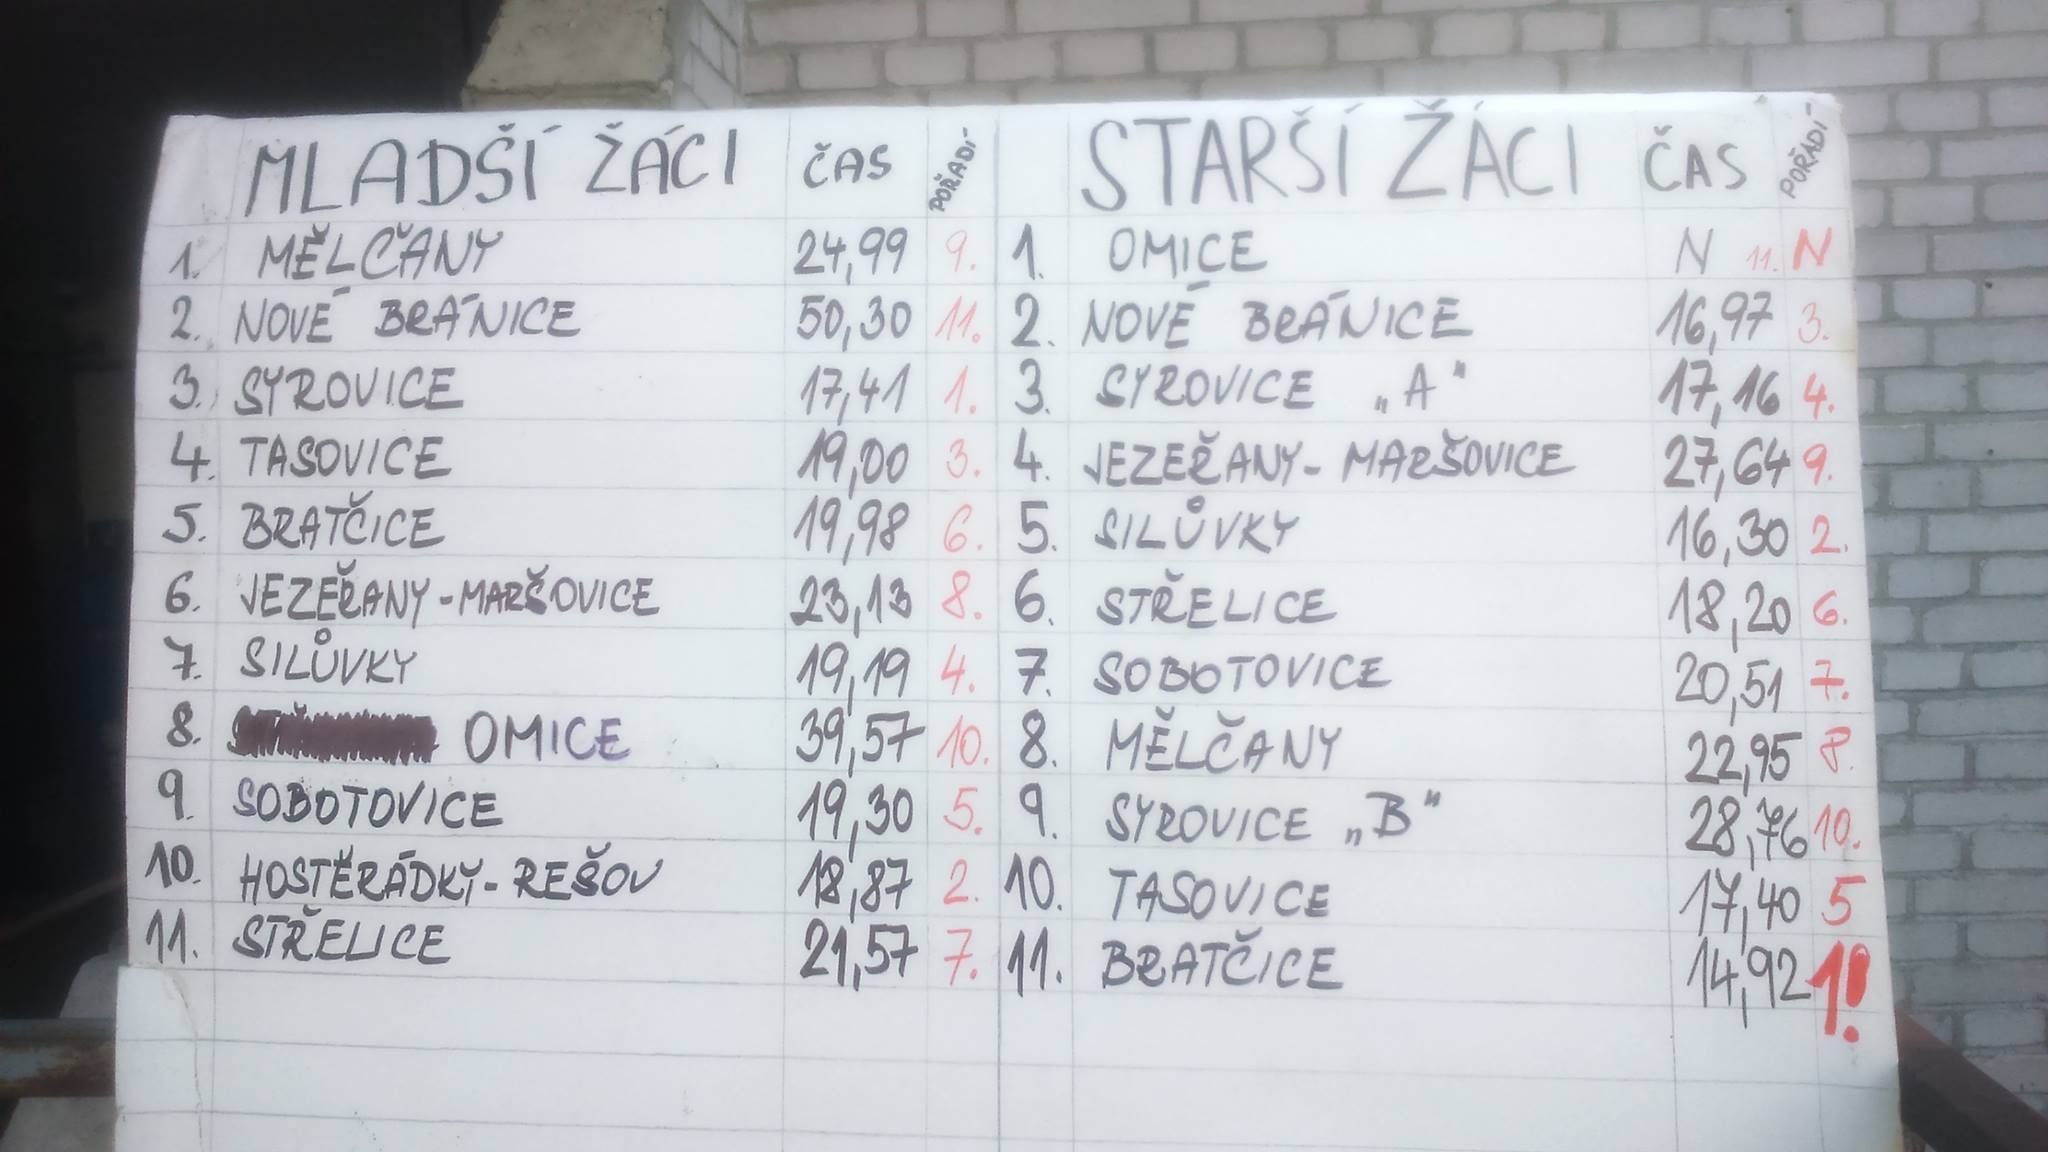 MLADŠÍ ŽÁCI ČAS POŘADÍ STARŠÍ ŽÁCI ČAS POŘADÍ
1. MĚLČANY 24,99 9. 1. OMICE N 11. N
2. NOVÉ BRÁNICE 50,30 11. 2. NOVÉ BRÁNICE 16,97 3.
3. SYROVICE 17,41 1. 3. SYROVICE „A" 17,16 4.
4. TASOVICE 19,00 3. 4. JEZEŘANY-MARŠOVICE 27,64 9.
5. BRATČICE 19,98 6. 5. SILŮVKY 16,30 2.
6. JEZEŘANY-MARŠOVICE 23,13 8. 6. STŘELICE 18,20 6.
7. SILŮVKY 19,19 4. 7. SOBOTOVICE 20,51 7.
8. OMICE 39,57 10. 8. MĚLČANY 22,95 8.
9. SOBOTOVICE 19,30 5. 9. SYROVICE „B" 28,76 10.
10. HOSTĚRÁDKY-REŠOV 18,87 2. 10. TASOVICE 17,40 5
11. STŘELICE 21,57 7. 11. BRATČICE 14,92 1!